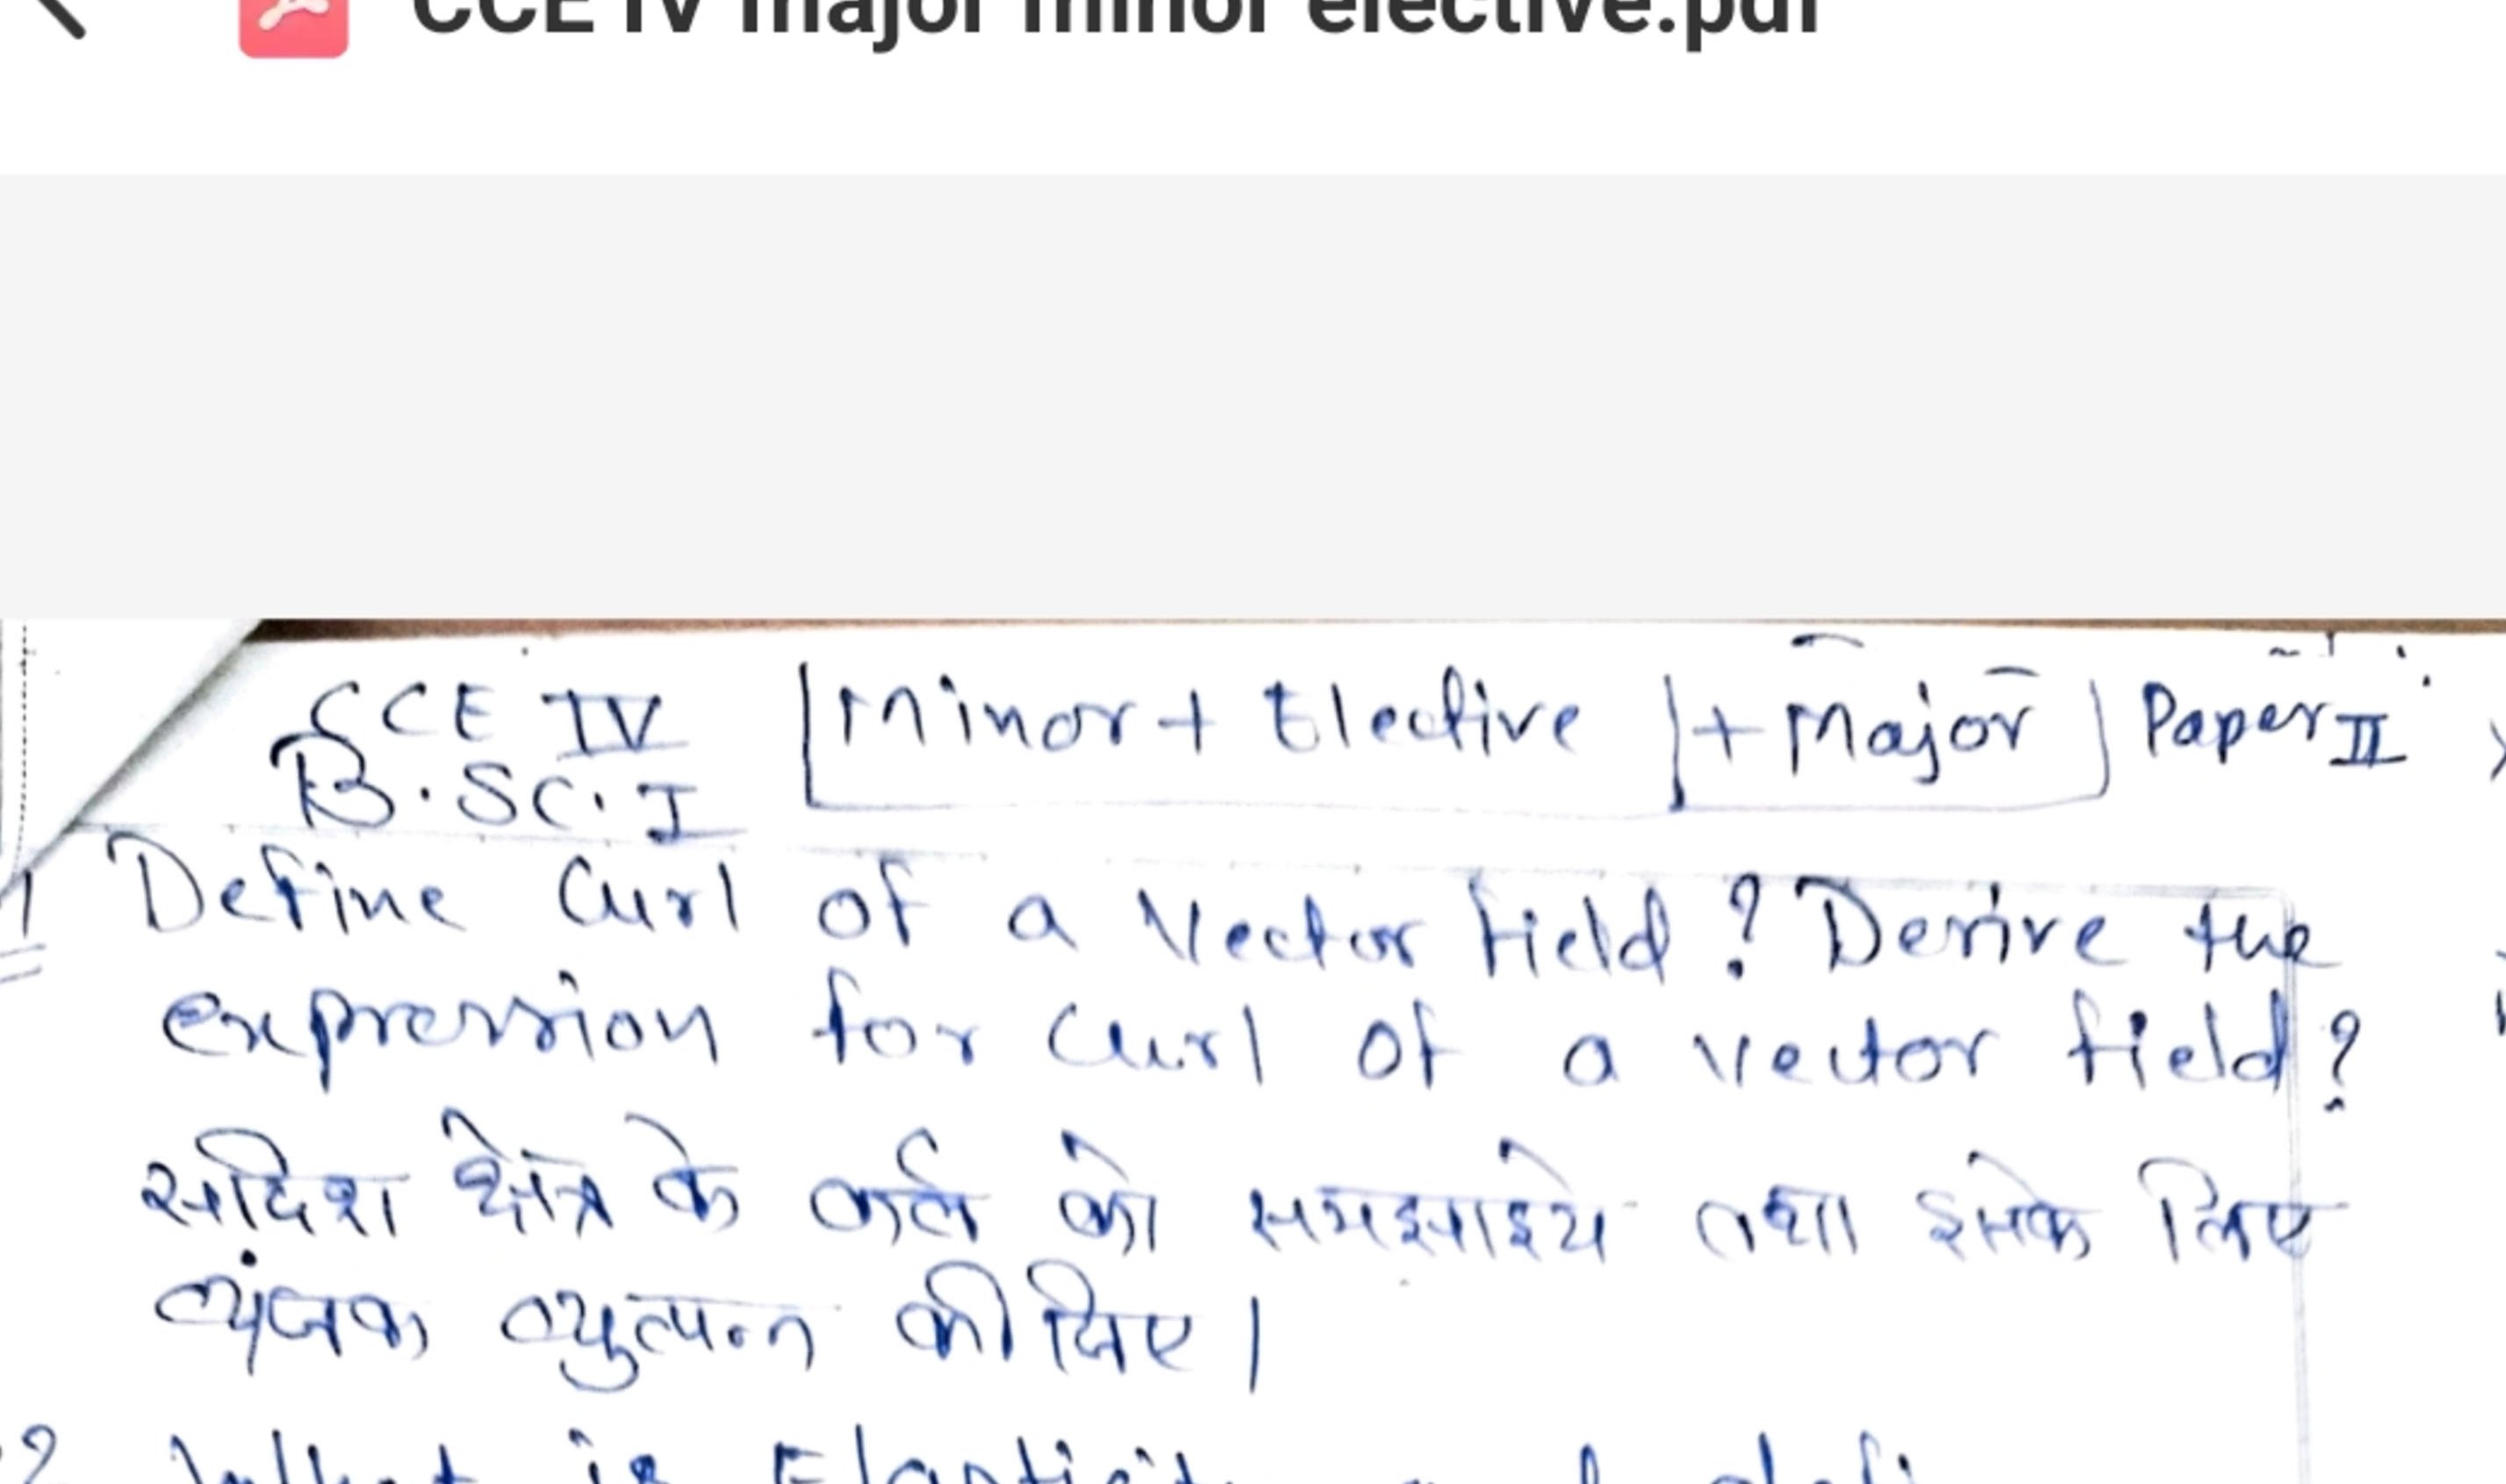 CCE IV major minor elective.pdf
CCE IV [Minor + Elective] + Major] Paper II
B.SC. I
1 Define Curl of a Vector field? Derive the
expression for Curl of a vector field?
सदिश क्षेत्र के कर्ल को समझाइये तथा इसके लिए
व्यंजक व्युत्पन्न कीजिए।
2 What is Elasticity